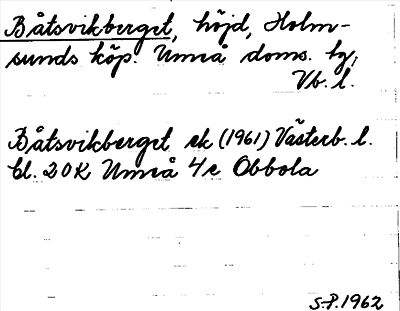 Båtsvikberget, höjd, Holm-
sunds köp. Umeå doms. hg,
Vb. l.
Båtsvikberget ek (1961) Västerb. l.
bl. 20K Umeå 4e Obbola
S-P. 1962